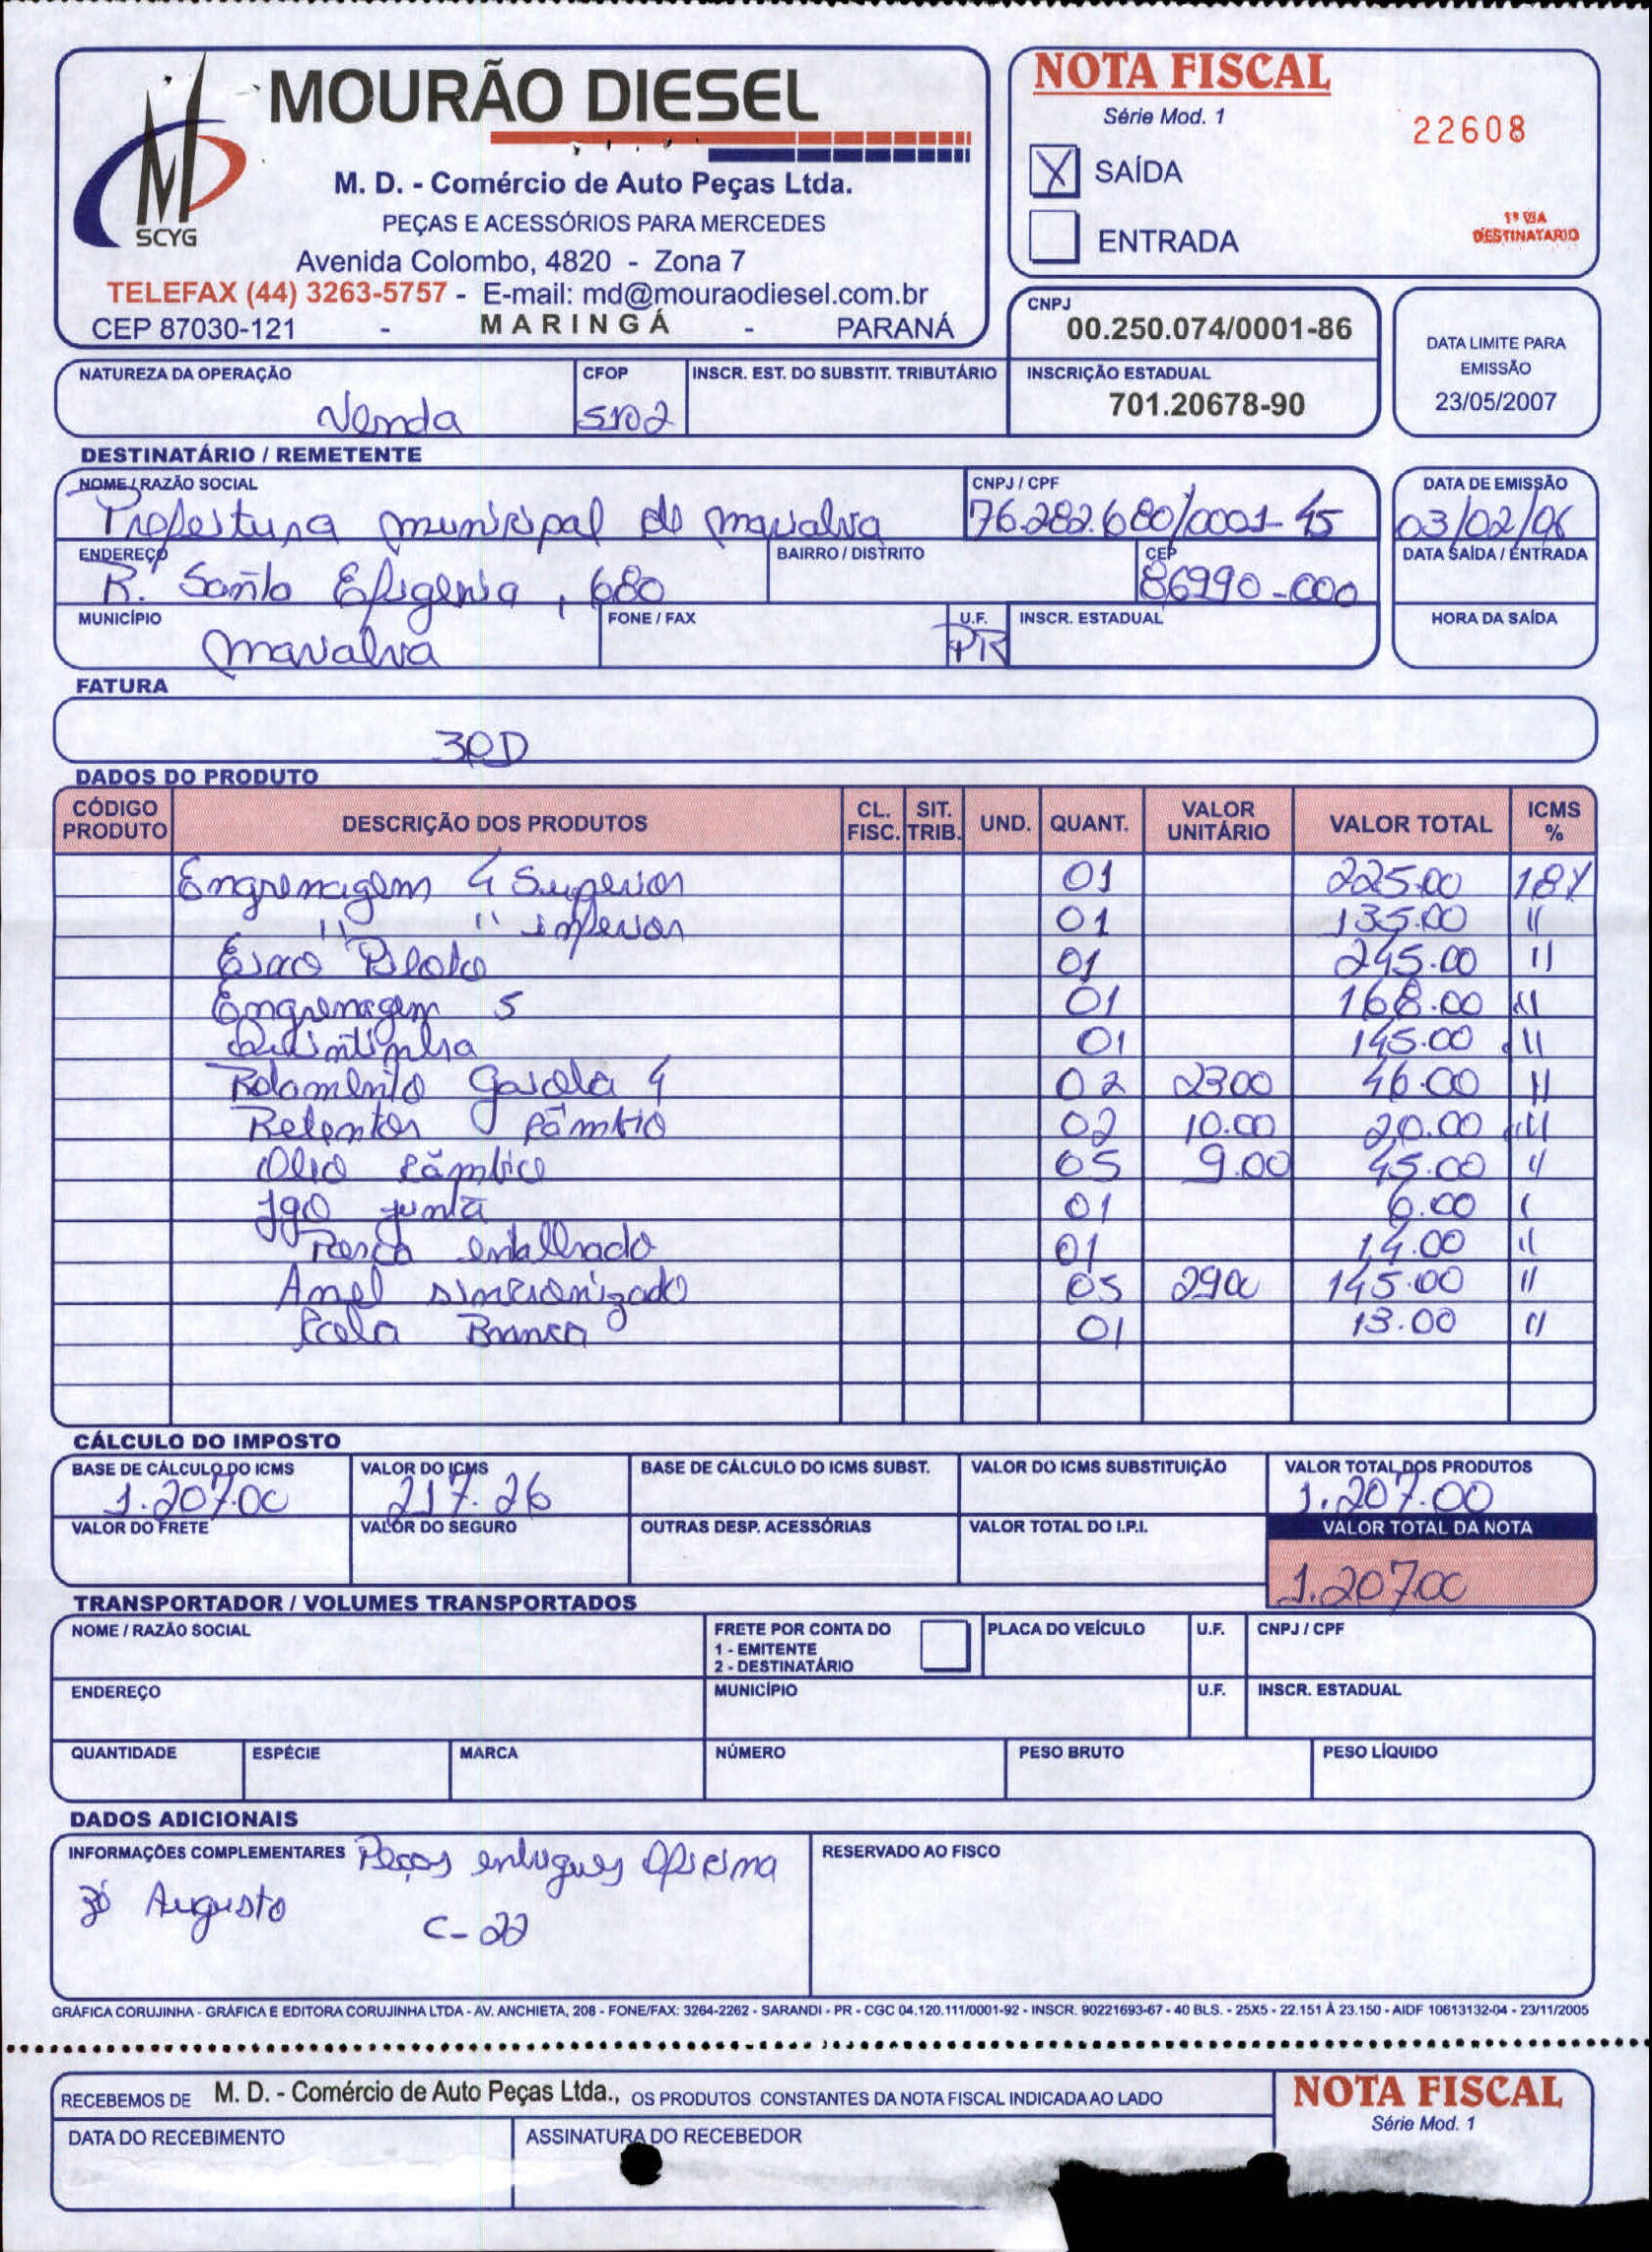 MOURÃO DIESEL
SCYG
M. D. - Comércio de Auto Peças Ltda.
PEÇAS E ACESSÓRIOS PARA MERCEDES
Avenida Colombo, 4820 - Zona 7
TELEFAX (44) 3263-5757 - E-mail: md@mouraodiesel.com.br
CEP 87030-121 - MARINGÁ - PARANÁ
NOTA FISCAL
Série Mod. 1
22608
X SAÍDA
ENTRADA
1ª VIA
DESTINATARIO
CNPJ
00.250.074/0001-86
DATA LIMITE PARA
EMISSÃO
23/05/2007
NATUREZA DA OPERAÇÃO CFOP INSCR. EST. DO SUBSTIT. TRIBUTÁRIO INSCRIÇÃO ESTADUAL
Venda 5102 701.20678-90
DESTINATÁRIO / REMETENTE
NOME / RAZÃO SOCIAL CNPJ / CPF DATA DE EMISSÃO
Prefeitura municipal de marialva 76.282.680/0001-45 03/02/06
ENDEREÇO BAIRRO / DISTRITO CEP DATA SAÍDA / ENTRADA
R. Santa Efigenia, 680 86990-000
MUNICÍPIO FONE / FAX U.F. INSCR. ESTADUAL HORA DA SAÍDA
marialva PR
FATURA
DADOS DO PRODUTO
CÓDIGO PRODUTO DESCRIÇÃO DOS PRODUTOS CL. FISC. SIT. TRIB. UND. QUANT. VALOR UNITÁRIO VALOR TOTAL ICMS %
Engrenagem 4 Superior 01 225.00 18%
" " inferior 01 135.00 "
Eixo Piloto 01 245.00 "
Engrenagem 5 01 168.00 "
01 145.00 "
Rolamento Gaiola 4 02 2300 46.00 "
Retentor Câmbio 02 10.00 20.00 "
Oleo Câmbio 05 9.00 45.00 "
Jgo junta 01 6.00 "
entalhado 01 14.00 "
Anel sincronizado 05 2900 145.00 "
Cola Branca 01 13.00 "
CÁLCULO DO IMPOSTO
BASE DE CÁLCULO DO ICMS VALOR DO ICMS BASE DE CÁLCULO DO ICMS SUBST. VALOR DO ICMS SUBSTITUIÇÃO VALOR TOTAL DOS PRODUTOS
1.207.00 217.26 1.207.00
VALOR DO FRETE VALOR DO SEGURO OUTRAS DESP. ACESSÓRIAS VALOR TOTAL DO I.P.I. VALOR TOTAL DA NOTA
1.207.00
TRANSPORTADOR / VOLUMES TRANSPORTADOS
NOME / RAZÃO SOCIAL FRETE POR CONTA DO PLACA DO VEÍCULO U.F. CNPJ / CPF
1 - EMITENTE
2 - DESTINATÁRIO
ENDEREÇO MUNICÍPIO U.F. INSCR. ESTADUAL
QUANTIDADE ESPÉCIE MARCA NÚMERO PESO BRUTO PESO LÍQUIDO
DADOS ADICIONAIS
INFORMAÇÕES COMPLEMENTARES Peças entregues Oficina RESERVADO AO FISCO
Zé Augusto C-22
GRÁFICA CORUJINHA - GRÁFICA E EDITORA CORUJINHA LTDA - AV. ANCHIETA, 208 - FONE/FAX: 3264-2262 - SARANDI - PR - CGC 04.120.111/0001-92 - INSCR. 90221693-67 - 40 BLS. - 25X5 - 22.151 À 23.150 - AIDF 10613132-04 - 23/11/2005
RECEBEMOS DE M. D. - Comércio de Auto Peças Ltda., OS PRODUTOS CONSTANTES DA NOTA FISCAL INDICADA AO LADO
NOTA FISCAL
Série Mod. 1
DATA DO RECEBIMENTO ASSINATURA DO RECEBEDOR